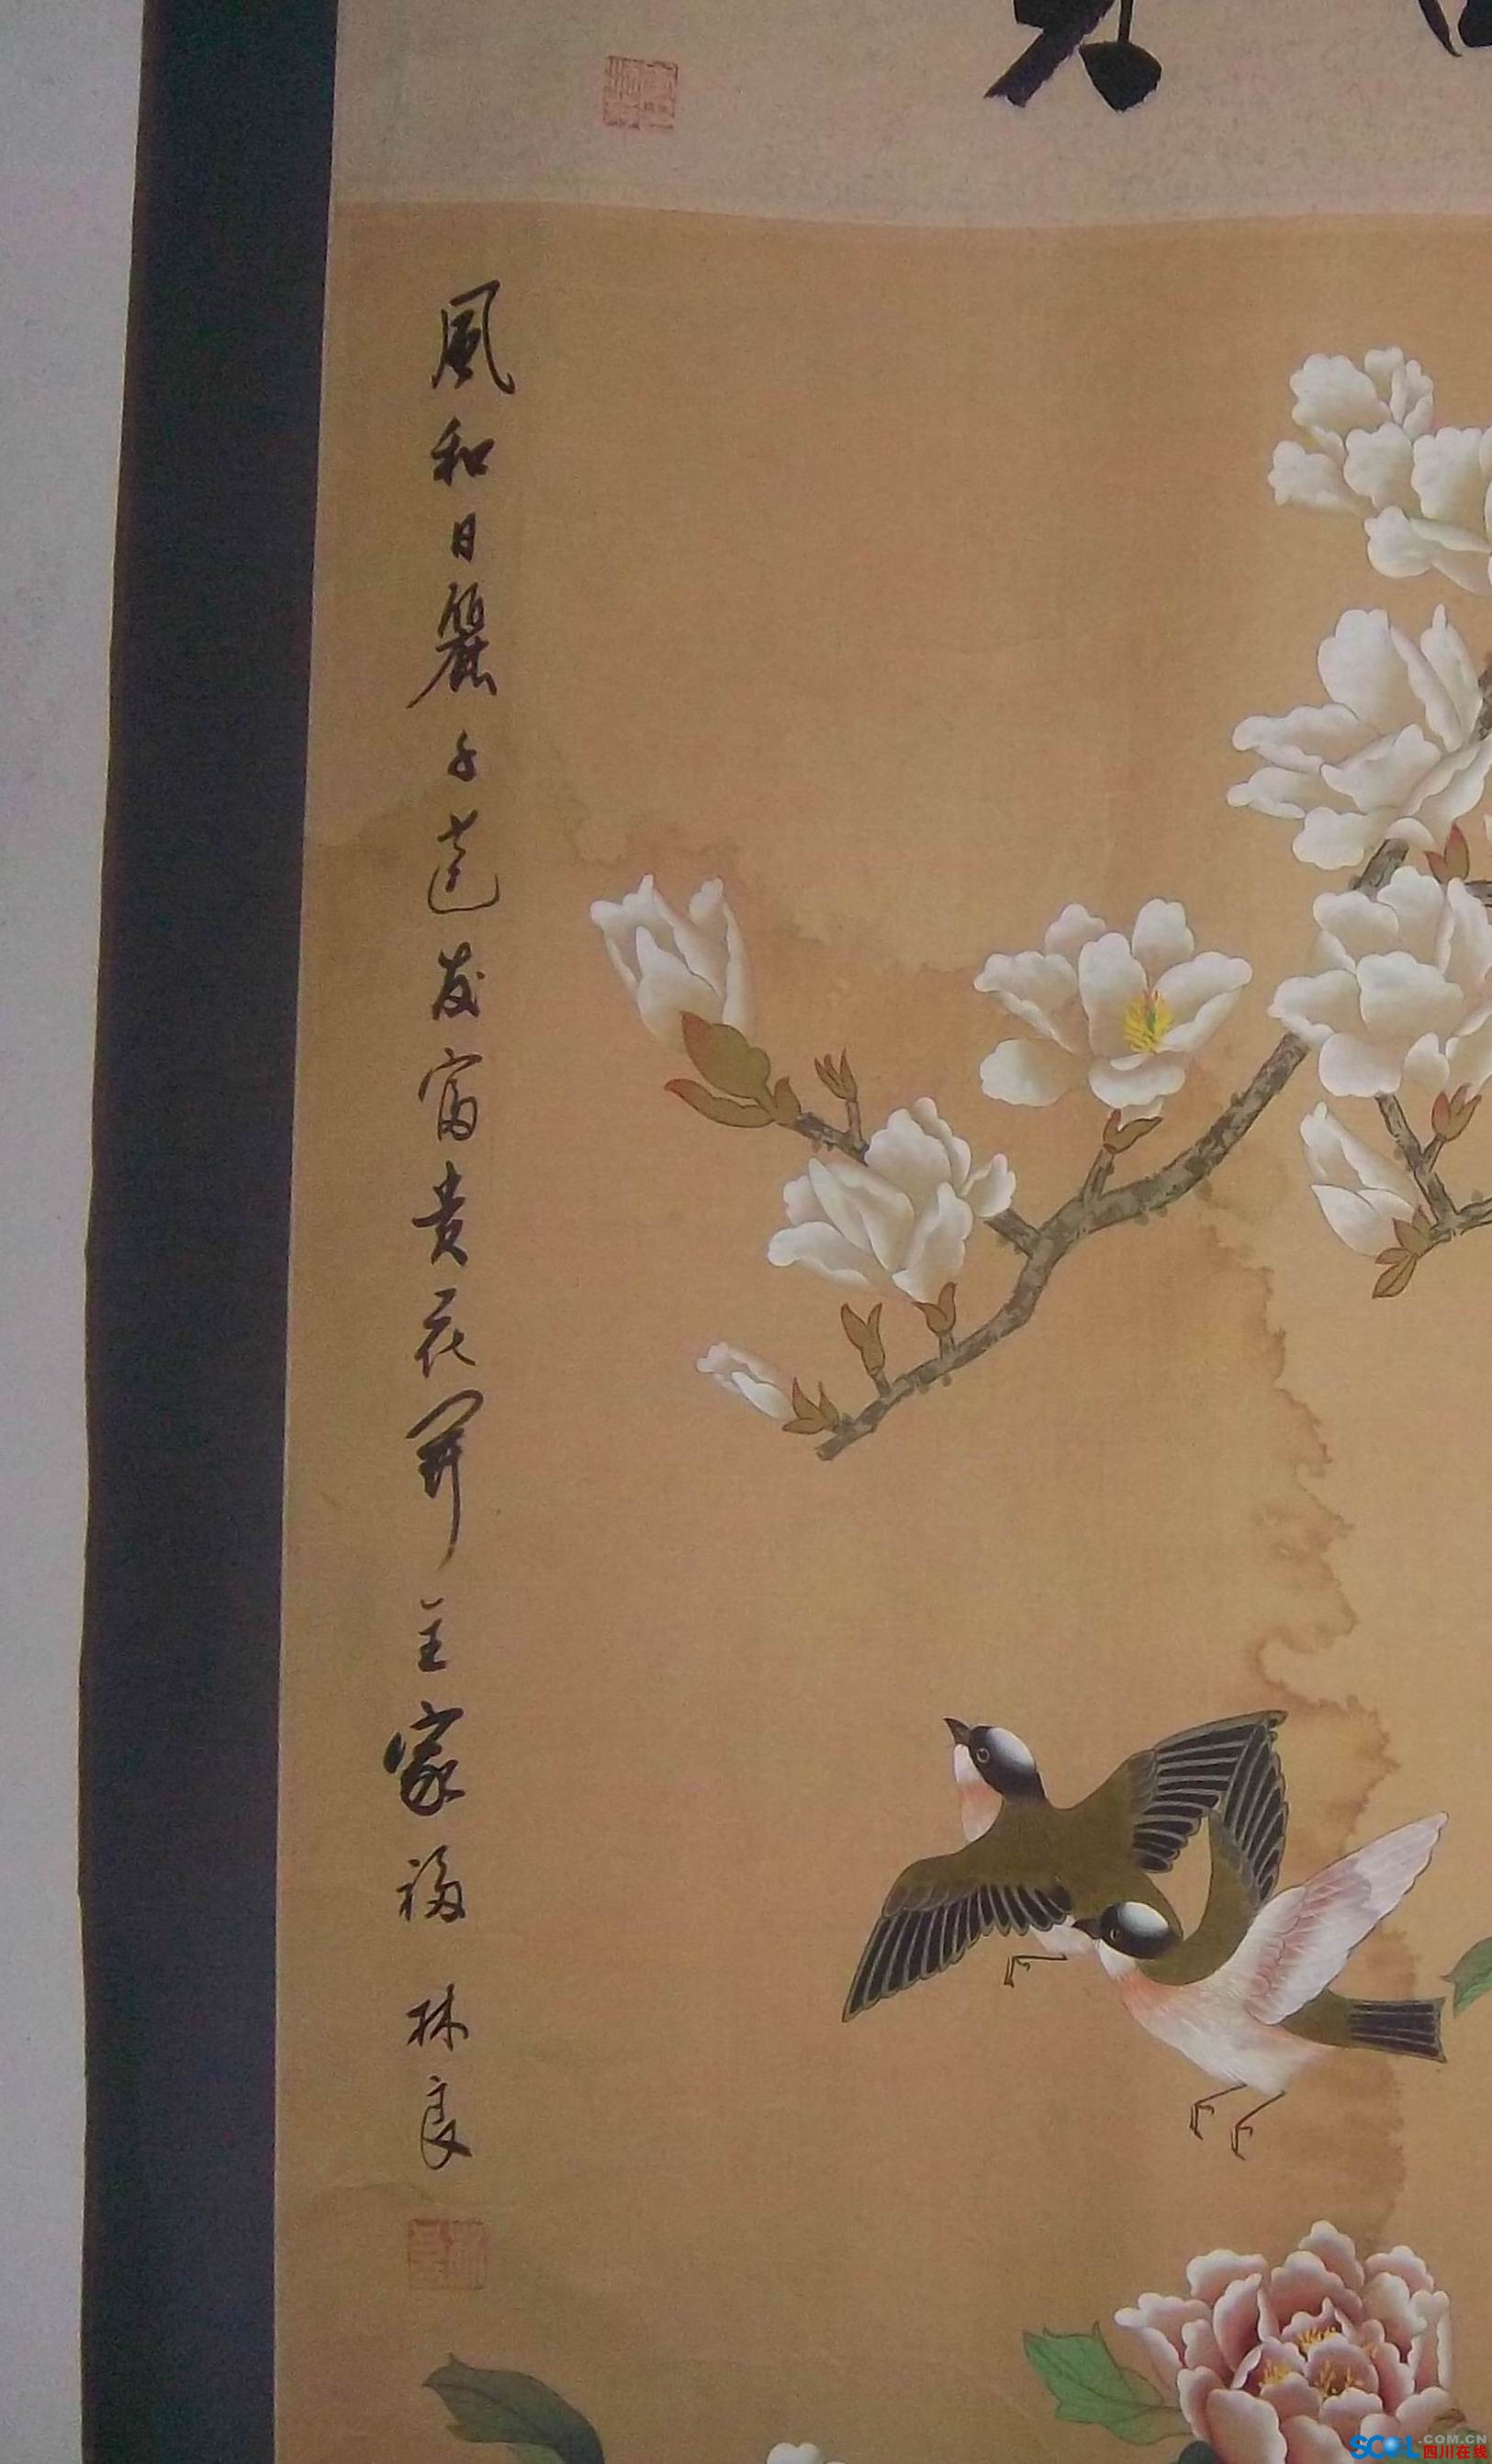 風和日麗子達友富貴花開主家福
林良
SCOL.COM.CN
四川在线